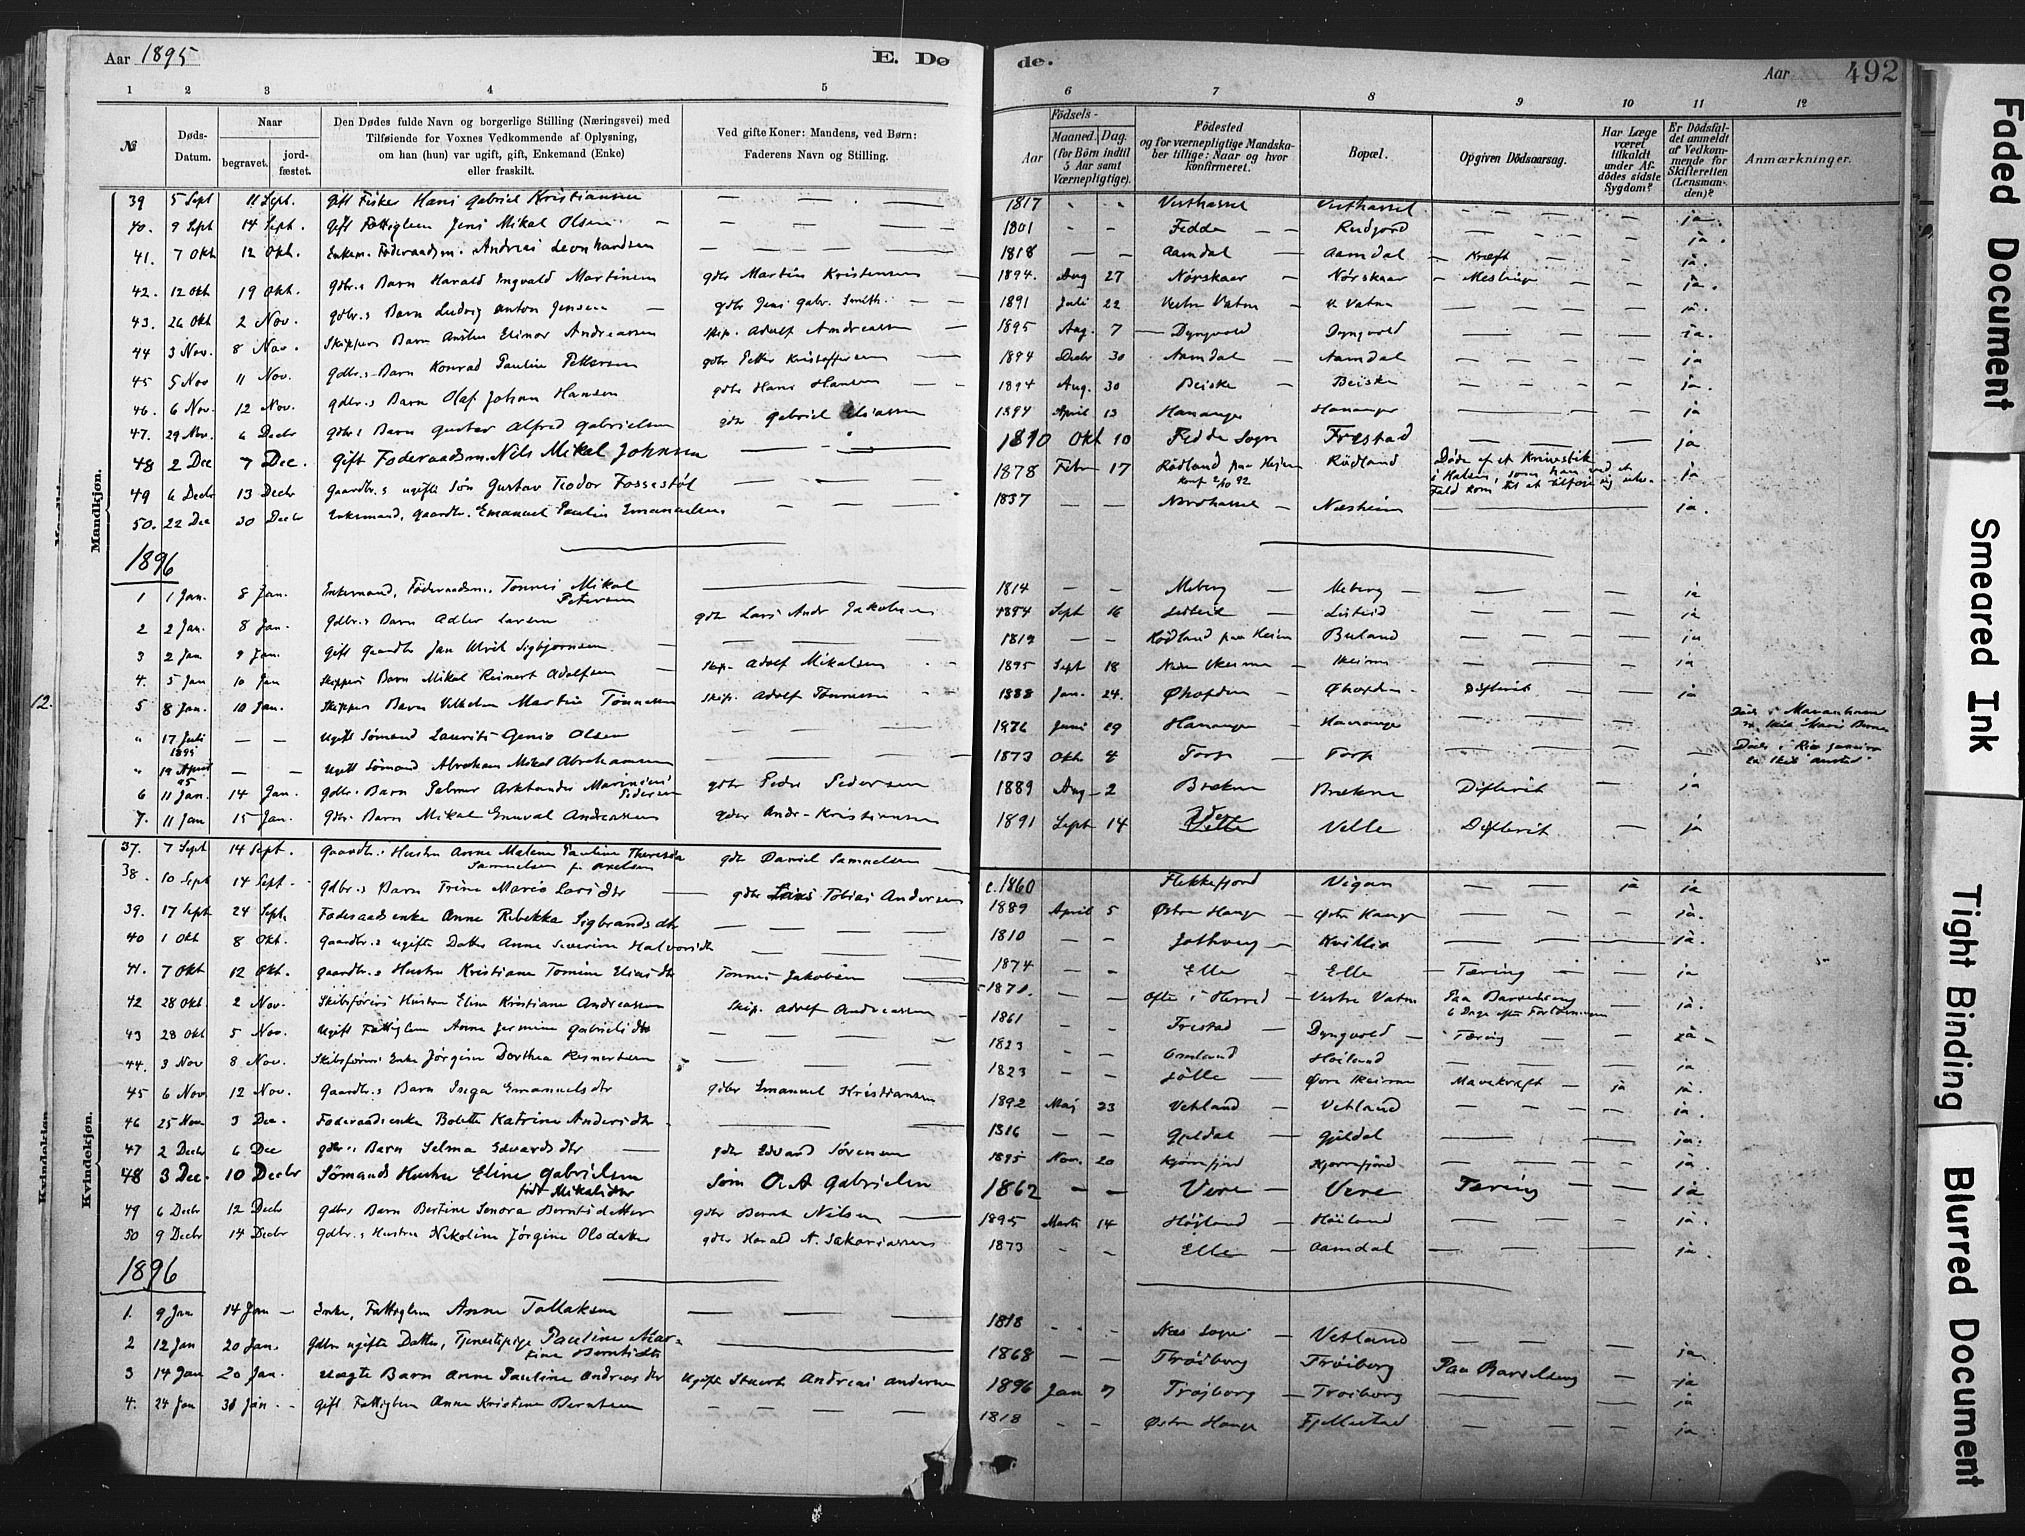 Aar 1895
E. Dø
de.
Aar
492
1 2 3 4 5 6 7 8 9 10 11 12
№
Døds-Datum.
Naar
begravet.
jord-fæstet.
Den Dødes fulde Navn og borgerlige Stilling (Næringsvei) med
Tilføiende for Voxnes Vedkommende af Oplysning,
om han (hun) var ugift, gift, Enkemand (Enke)
eller fraskilt.
Ved gifte Koner: Mandens, ved Børn:
Faderens Navn og Stilling.
Fødsels-
Aar
Maaned. Dag.
(for Børn indtil
5 Aar samt
Værnepligtige).
Fødested
og for værnepligtige Mandska-
ber tillige: Naar og hvor
konfirmeret.
Bopæl.
Opgiven Dødsaarsag.
Har Læge
været
tilkaldt
under Af-
dødes sidste
Sygdom?
Er Dødsfal-
det anmeldt
af Vedkom-
mende for
Skifteretten
(Lensman-
den)?
Anmærkninger.
Mandkjøn.
39 5 Sept 11 Sept. gift Fisker Hans Gabriel Kristiansen — 1817 - - Vesthassel Vesthassel ja
40. 9 Sept 14 Sept. gift Fattiglem Jens Mikal Olsen — 1801 - - Fedda — ja.
41. 7 Okt 12 Okt. Enkem. Føderaadsm. Andreas Leonhardsen — 1818 — Aamdal — Aamdal — Kræft — ja
42. 12 Okt 19 Okt. gdbr.s Barn Harald Ingvald Martinsen gdbr Martin Kristensen 1894. Aug 27 Nørskaar — Nørskaar — Meslinger — ja.
43. 26 Okt 2 Nov. gdbr.s Barn Ludvig Anton Jensen gdbr Jens Gabr. Smith 1891 Juli 22 Vestre Vatne — V. Vatne — ja.
44 3 Nov. 8 Nov. Skippers Barn Elinor Andreassen Skip. Adolf Andreassen 1895 Aug. 7 — Dyngvold Dyngvold — ja.
45 5 Nov 11 Nov. gdbr.s Barn Konrad Pauline Pettersen gdbr Petter Kristoffersen 1894 Decbr 30 Aamdal — Aamdal — ja
46. 6 Nov. 12 Nov. gdbr.s Barn Olaf Johan Hansen gdbr Hans Hansen 1894 Aug. 30 Beiske — Beiske — ja.
47. 29 Nov. 6 Decbr gdbr.s Barn Gustav Alfred Gabrielsen gdbr Gabriel Eliassen 1894 April 13 Hananger Hananger — ja
48 2 Dec 7 Dec. Gift Føderaadsm. Nils Mikal Johnsen — 1810 Okt 10 Fedde Sogn Frestad — ja
49 6 Decbr 13 Decbr Gaardbr.s ugifte Søn Gustav Teodor Fossestøl — 1878 Febr 17 Rødland paa Heien Rødland Døde af et Knivstik
konf 2/10 92 i Halsen, som han ved et
Fald kom til at tilføie sig selv. ja
50. 22 Dec 30 Decbr Enkemand, gaardbr. Emanuel Paulin Emanuelsen. 1837 — Nordhassel — Næsheim — ja.
1896
1 1 Jan. 8 Jan. Enkemand, Føderaadsm. Tønnes Mikal
Petersen — 1814 — Meberg — Meberg — ja
2 2 Jan. 8 Jan. Gdbr.s Barn Adler Larsen gdbr Lars Andr Jakobsen 1894 Sept 16 — ja
3 2 Jan 9 Jan. gift Gaardbr Jan Ulrik Sigbjørnsen — Rødland paa Heien Buland — ja
4. 5 Jan 10 Jan Skippers Barn Mikal Reinert Adolfsen Skip. Adolf Mikalsen 1895 Sept 18 — ja
5 8 Jan. 10 Jan. Skippers Barn Vilhelm Martin Tønnessen Skip. Adolf Tønnesen 1888 Jan. 24. — Difterit — ja
" 17 Juli
1895 — Ugift Sømand Laurits Olsen — 1876 Juni 29 Hananger — Hananger Døde i Maranham
" 19 April
95 — Ugift Sømand Abraham Mikal Abrahamsen — 1873 Okt 4 Torp — Torp Døde i Rio Janeiro
6 11 Jan. 14 Jan. gdbr. Barn Palmer Marinius
Pedersen gdbr Peder Pedersen 1889 Aug — 2 Brekne Brekne Difterit — ja
7. 11 Jan 15 Jan. gdbr. Barn Mikal Enevald Andreassen gdbr Andr. Kristiansen 1891 Sept 14 Velle Difterit — ja
Kvindekjøn.
37. 7 Sept 14 Sept. Gaardbr.s Hustru Anne Malene Pauline Theresia
Samuelsen f. Axelsen gdbr Daniel Samuelsen c. 1860 Flekkefjord Vigan — ja ja
38. 10 Sept 14 Sept. Gdbr.s Barn Trine Marie Larsdtr — gdbr Tobias Andersen 1889 April 5 Østre Hauge — Østre Hauge — ja.
39. 17 Sept 24 Sept. Føderaadsenke Anne Rebekka Sigbrandsdtr 1810 — ja.
40 1 Okt 8 Okt. Gaardbr.s ugifte Datter Anne Severine Halvorsdtr 1874 - - Elle — Elle — Tæring — ja
41. 7 Okt 12 Okt. Gaardbr.s Hustru Kristiane Tomine Eliasdtr Tønnes Jakobsen 1871. — Ofte i Herred — Vestre Vatne Paa Barselseng
6 Dage efter Forløsningen ja.
42 28 Okt 2 Nov. Skibsførers Hustru Eline Kristiane Andreassen Skip. Adolf Andreassen 1861 - - Frestad — Dyngvold — Tæring — ja
43 28 Okt 5 Nov. Ugift Fattiglem Anne Jermine Gabrielsdtr — 1823 — Omland Høiland — ja
44. 3 Nov 8 Nov. Skibsførers Enke Jørgine Dorthea Reinertsen — 1823 — Jølle — Øvre Skeime Mavekræft — ja ja.
45 6 Nov 12 Nov. Gaardbr.s Barn Inga Emanuelsdtr gdbr Emanuel Kristiansen 1892 Maj 23 Vetland — Vetland — ja.
46 25 Nov 3 Dec. Føderaadsenke Bolette Katrine Andersdtr — 1816 — Gjeldal — Gjeldal — ja.
47 2 Decbr 6 Dec gdbr.s Barn Selma Edvardsdtr — gdbr Edvard Sørensen 1895 Nov. 20 Kjørrefjord Kjørrefjord — ja.
48 3 Dec. 10 Decbr Sømands Hustru Eline Gabrielsen
født Mikalsdtr Søm O. A Gabrielsen 1862 — Vere — Vere Tæring — ja
49 6 Decbr 12 Decbr gdbr. Barn Bertine Senora Berntsdatter gdbr Bernt Nilsen — 1895 Marts 14 Højland — Høiland — ja.
50 9 Decbr 14 Decbr Gdbr.s Hustru Nikoline Jørgine Olsdatter gdbr Harald A. Sakariassen 1873 - - Elle — Aamdal — ja.
1896
1. 9 Jan 14 Jan — Enke, Fattiglem Anne Tollaksen — 1818 - - Næs Sogn — Vetland —
2 12 Jan 20 Jan. Gdbr ugifte Datter, Tjenestepige Pauline Mar-
tine Berntsdtr — 1868 — Trøiborg Trøiborg Paa Barselseng — ja
3 14 Jan 20 Jan. Uægte Barn Anne Pauline Andreasdtr Ugift Stuert Andreas Andersen 1896 Jan 7 Trøjborg — Trøiborg — ja
4. 24 Jan 31 Jan - - gift Fattiglem Anne Kristine Berntsen — 1818 - - Østre Hauge Fjellestad — ja
Faded Document
Smeared Ink
Tight Binding
Blurred Document
Kvindekjøn.
12.